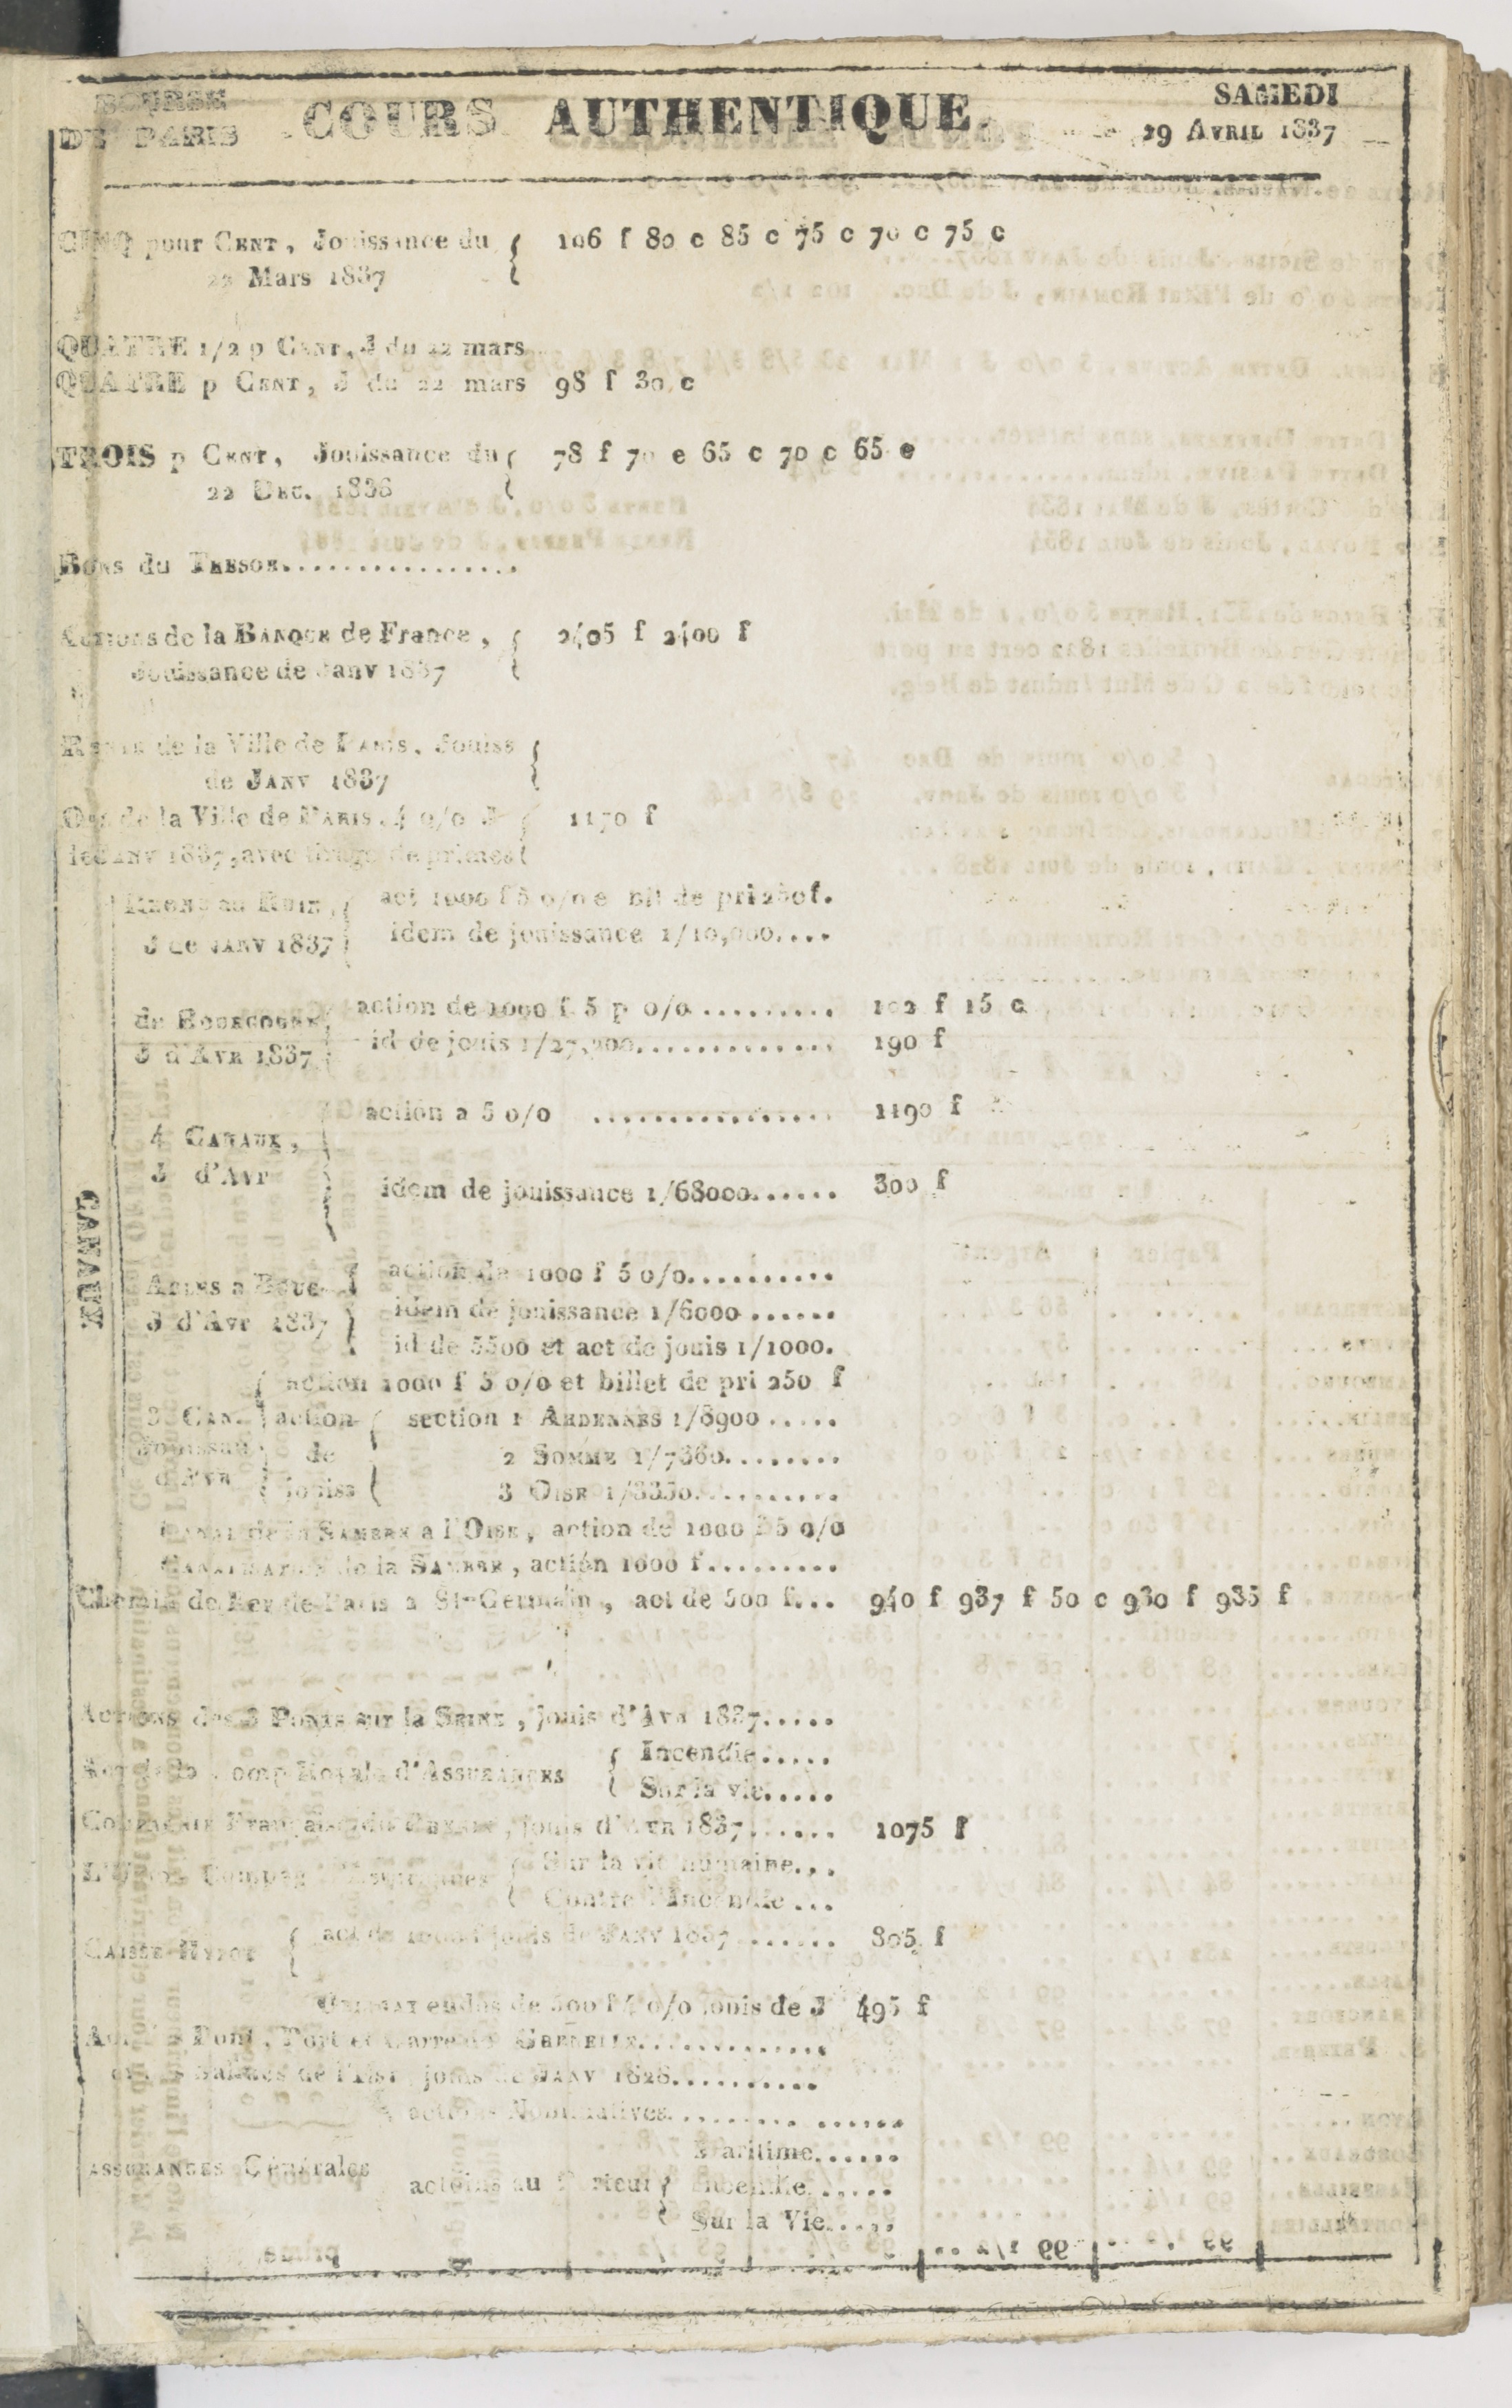 BOURSE
DE PARIS
COURS AUTHENTIQUE
SAMEDI
29 AVRIL 1837
CINQ pour CENT, Jouissance du { 106 f 80 c 85 c 75 c 70 c 75 c
22 Mars 1837
QUATRE 1/2 p CENT, J du 22 mars
QUATRE p CENT, J du 22 mars 98 f 30 c
TROIS p CENT, Jouissance du { 78 f 70 c 65 c 70 c 65 c
22 DEC. 1836
BONS du TRESOR................
Actions de la BANQUE de France, { 2405 f 2400 f
Jouissance de Janv 1837
RENTE de la Ville de PARIS, Jouiss {
de JANV 1837
de la Ville de PARIS, 4 o/o J { 1170 f
JANV 1837, avec tirage de primes
CANAUX
RHONE au RHIN, { act 1000 f 5 o/o e bil de pri 250 f.
J de JANV 1837 idem de jouissance 1/10,000....
de BOURGOGNE, action de 1000 f 5 p o/o ......... 102 f 15 c
J d'AVR 1837 id de jouis 1/27,200............. 190 f
4 CANAUX, action a 5 o/o ................ 1190 f
J d'AVR idem de jouissance 1/68000...... 300 f
ARLES a BOUC { action de 1000 f 5 o/o..........
J d'Avr 1837 idem de jouissance 1/6000 ......
id de 5500 et act de jouis 1/1000.
action 1000 f 5 o/o et billet de pri 250 f
3 CAN. action { section 1 ARDENNES 1/8900 .....
Jouissan de 2 SOMME 1/7360........
d'AVR { jouiss { 3 OISE 1/3350..........
CANAL de la SAMBRE a l'OISE, action de 1000 f 5 o/o
de la SAMBRE, action 1000 f.........
Chemin de Fer de Paris a St-Germain, act de 500 f... 940 f 937 f 50 c 930 f 935 f
Actions des 3 PONTS sur la SEINE, jouis d'AVR 1837.....
Comp Royale d'ASSURANCES { Incendie.....
Sur la vie.....
Français du jouis d'AVR 1837...... 1075 f
Compag { Sur la vie humaine...
Contre l'Incendie ...
CAISSE HYPOT { act de 1000 f jouis de JANV 1837 ...... 805 f
de 500 f 4 o/o jouis de J 495 f
Pont, Port et Gare de GRENELLE..............
jouis de JANV 1828..........
actions Nominatives......... ......
ASSURANCES Générales Maritime......
actions au Porteur { Incendie......
Sur la Vie.....